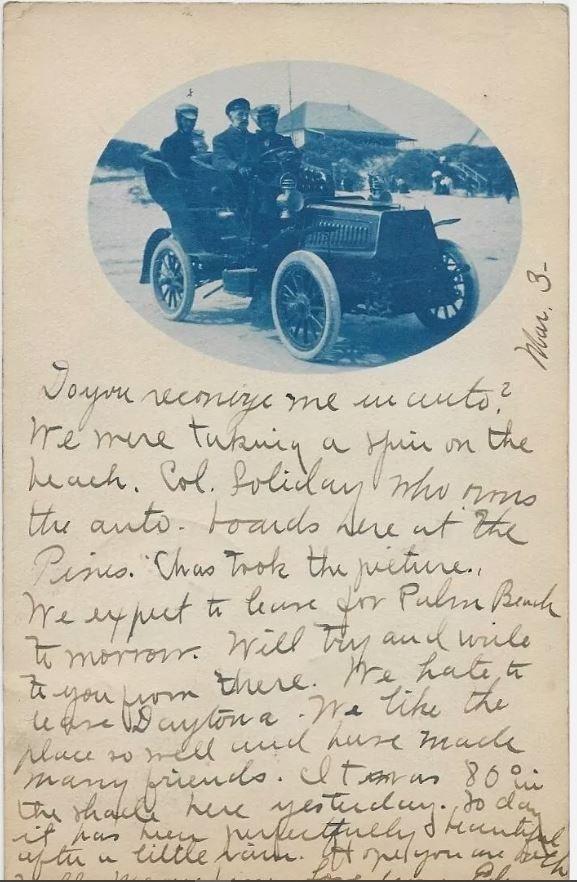 Mar. 3-
Do you reconize me in auto?
We were taking a spin on the
beach. Col. Soliday who owns
the auto. boards here at "The
Pines." Chas took the picture.
We expect to leave for Palm Beach
to morrow. Will try and write
to you from there. We hate to
leave Daytona. We like the
place so well and have made
many friends. It was 80° in
the shade here yesterday. To day
it has been perfectly beautiful
after a little rain. Hope you are both